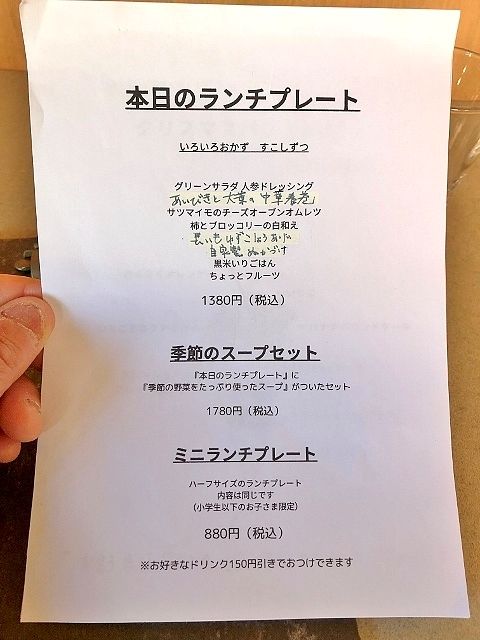 本日のランチプレート
いろいろおかず すこしずつ
グリーンサラダ 人参ドレッシング
あいびきと大葉の中華春巻
サツマイモのチーズオープンオムレツ
柿とブロッコリーの白和え
長いもゆずこしょうあえ
自家製ぬかづけ
黒米いりごはん
ちょっとフルーツ
1380円（税込）
季節のスープセット
『本日のランチプレート』に
『季節の野菜をたっぷり使ったスープ』がついたセット
1780円（税込）
ミニランチプレート
ハーフサイズのランチプレート
内容は同じです
（小学生以下のお子さま限定）
880円（税込）
※お好きなドリンク150円引きでおつけできます